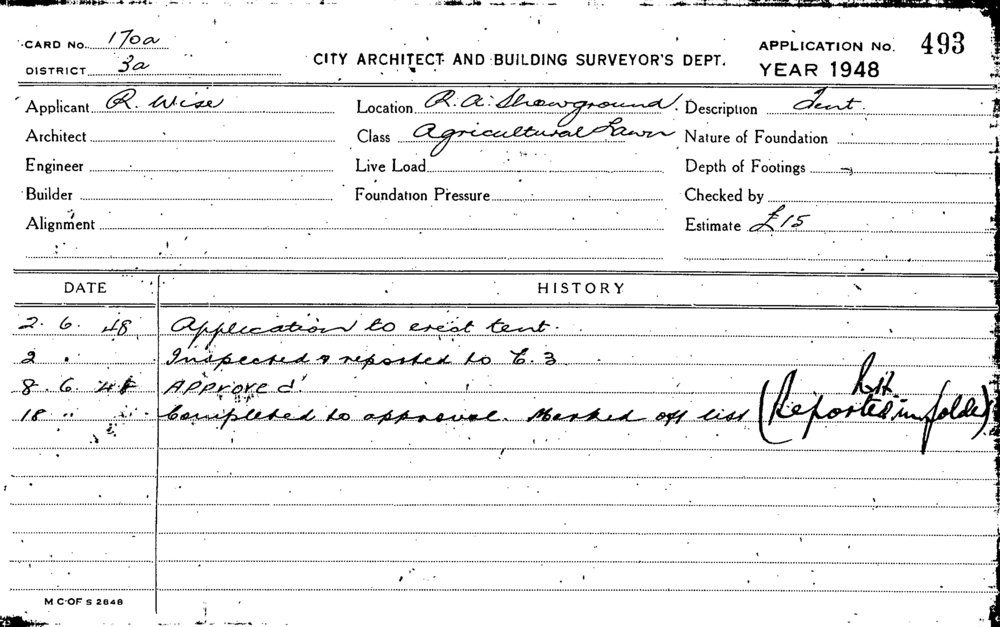 CARD No. 170a
DISTRICT 3a
CITY ARCHITECT AND BUILDING SURVEYOR'S DEPT.
APPLICATION No. 493
YEAR 1948
Applicant R. Wise Location R.A. Showground. Description Tent.
Architect Class Agricultural Lawn Nature of Foundation
Engineer Live Load Depth of Footings
Builder Foundation Pressure Checked by
Alignment Estimate £15
DATE HISTORY
2. 6. 48 Application to erect tent.
2 " Inspected & reported to C. 3
8. 6. 48 Approved
18 " " Completed to approval. Marked off list (Reported in folder)
M C OF S 2848